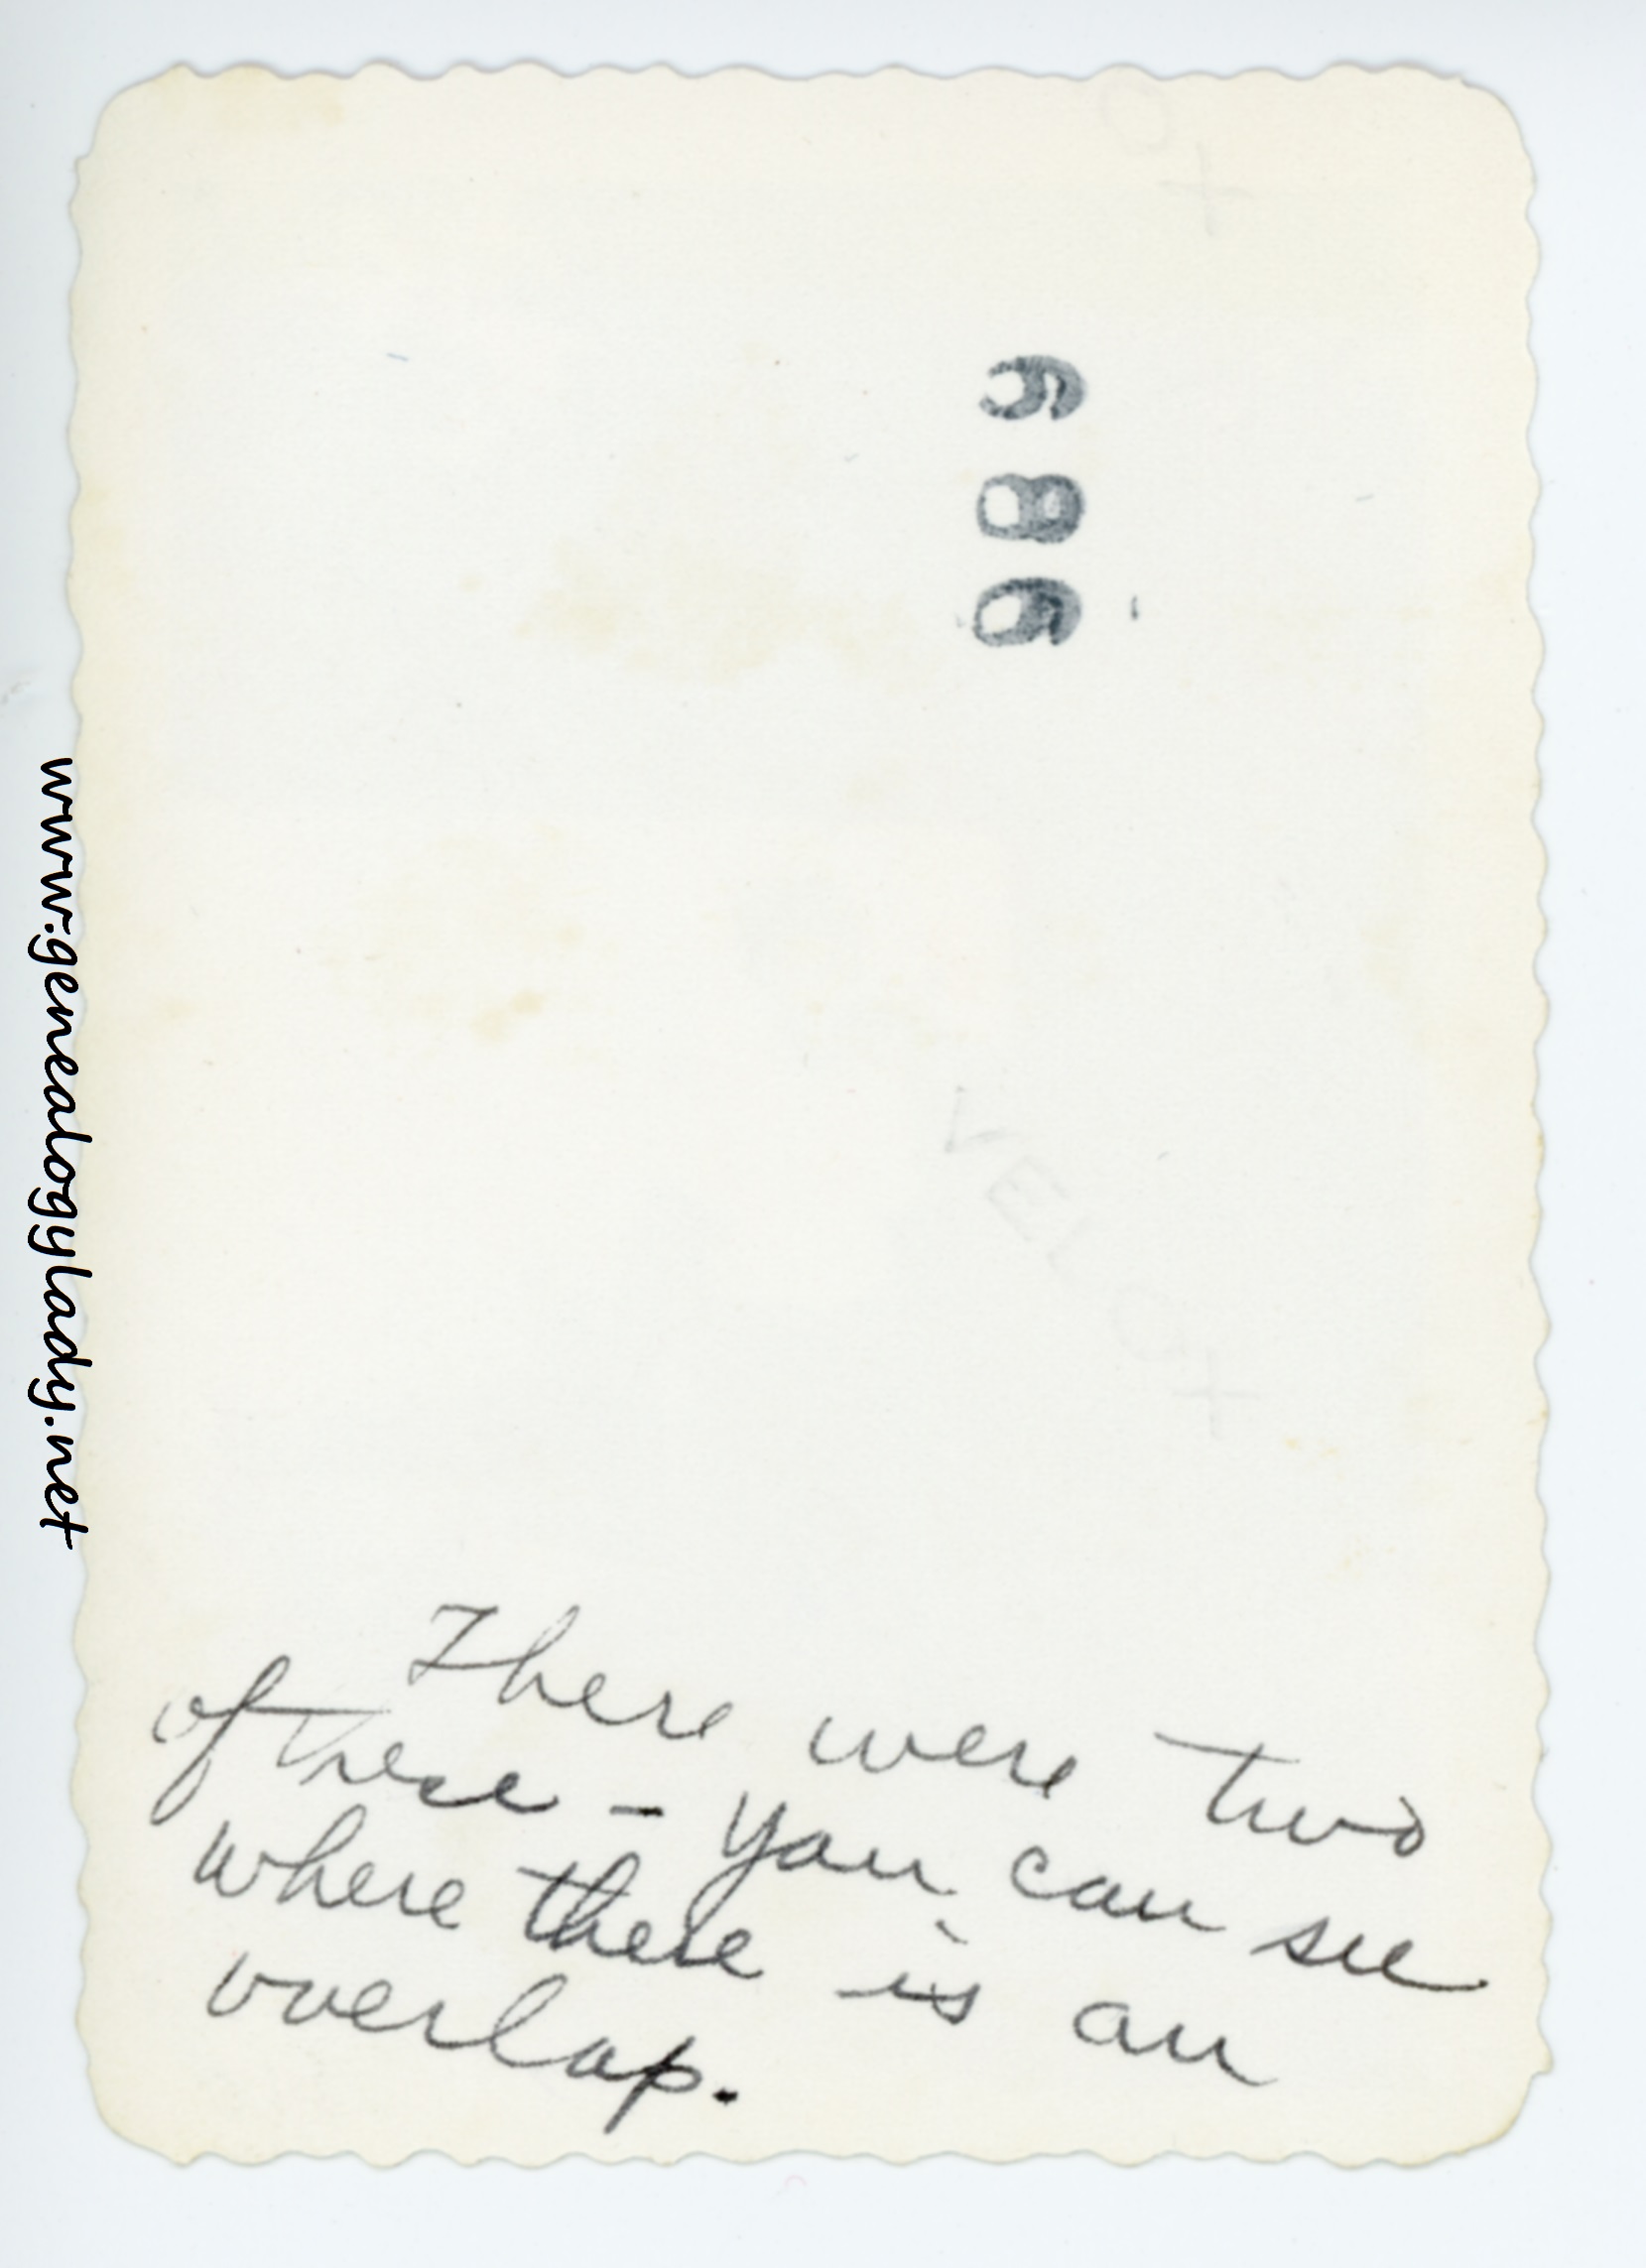 OX
VELOX
There were two
of these - you can see
where there is an
overlap.
www.genealogylady.net